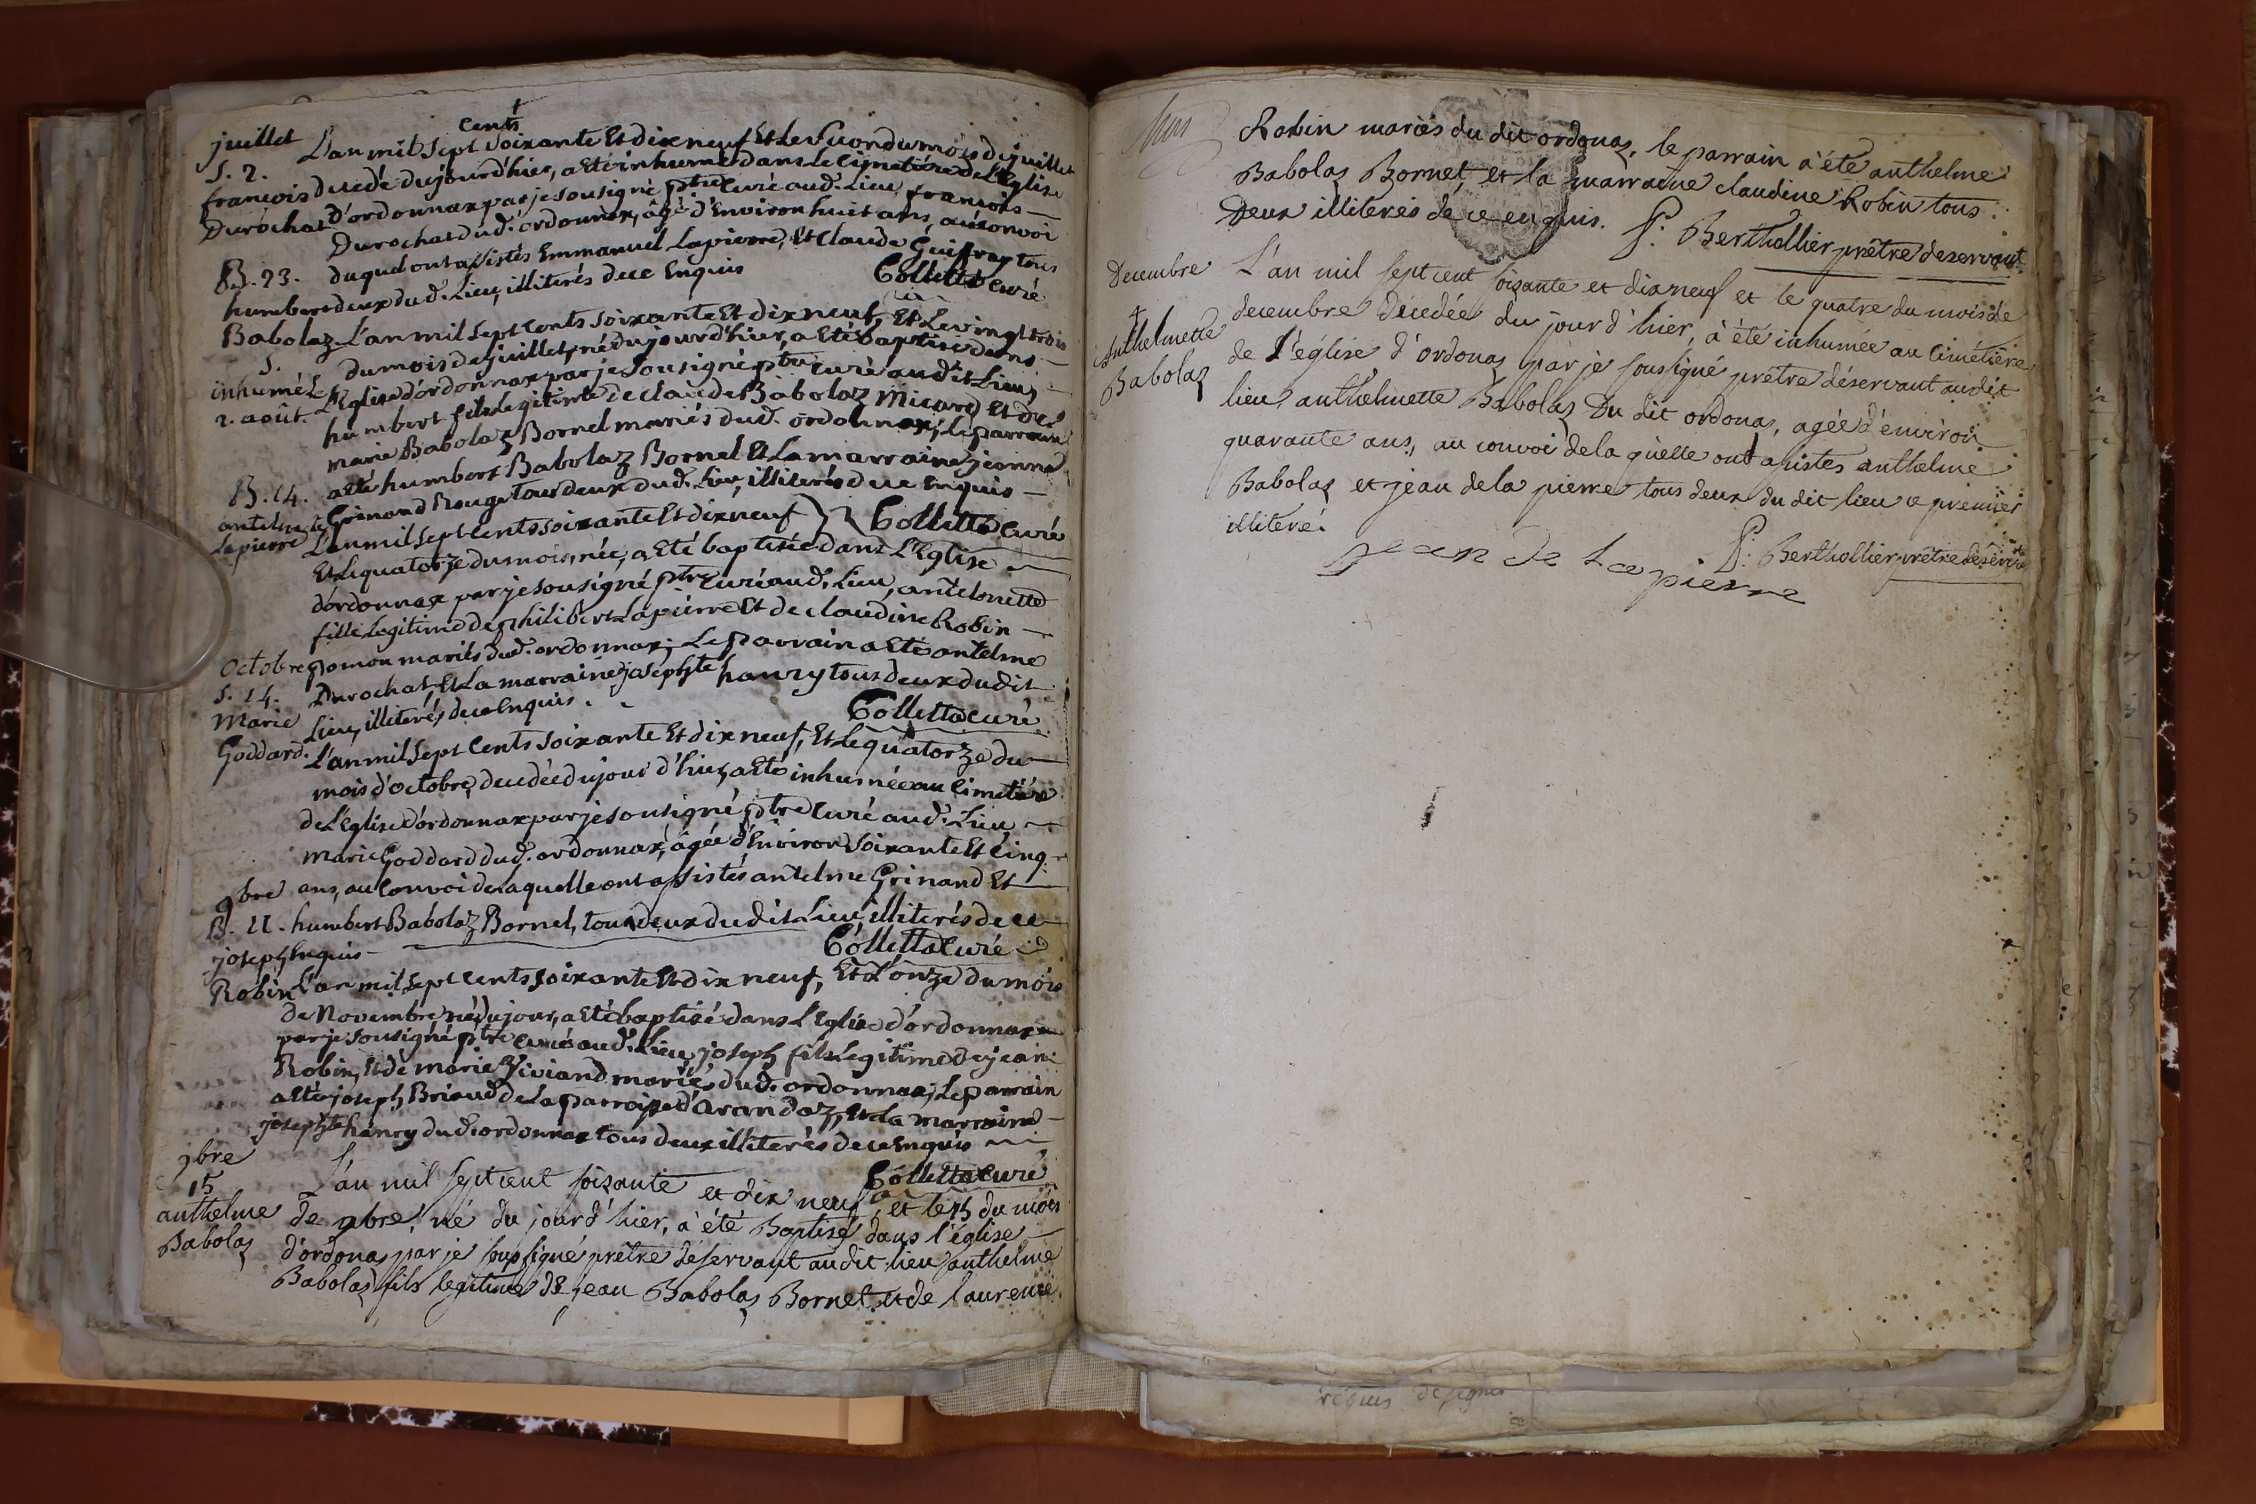 juillet
S. 2.
françois
Durochat
L'an mil sept cents soixante Et dix neuf Et Le second du mois de juillet
decedé du jourd'hier, a Eté inhumé dans Le Cimetière de L'Eglise
d'ordonnax par je sousigné ptre curé aud. Lieu, françois
Durochat dud. ordonnax, âgé d'Environ huit ans, au convoi
duquel ont assistés Emmanuel Lapierre, Et Claude Guifrey tous
deux dud. Lieu, illiterés de ce Enquis
Colletta curé
B. 23.
humbert
Babolaz
S.
inhumé Le
2. août.
L'an mil sept Cents soixante Et dix neuf, Et Le vingt trois
du mois de juillet, né du jourd'hier, a Eté baptisé dans
L'Eglise d'ordonnax par je sousigné ptre curé audit Lieu,
humbert fils Legitime de claude Babolaz Micard Et de
marie Babolaz Bornel mariés dud. ordonnax; Le parrain
a Eté humbert Babolaz Bornel Et La marraine jeanne
Grinand Rouge tous deux dud. Lieu, illiterés de ce Enquis
Colletta Curé
B. 14.
antelmette
Lapierre
L'an mil sept Cents soixante Et dix neuf
Et Le quatorze du mois, née, a Eté baptisée dans L'Eglise
d'ordonnax par je sousigné ptre curé aud. Lieu, antelmette
fille Legitime de philibert Lapierre Et de claudine Robin
pomou mariés dud. ordonnax; Le parrain a Eté antelme
Durochat, Et La marraine josephte hanry tous deux dudit
Lieu, illiterés de ce Enquis.
Colletta curé
octobre
S. 14.
Marie
Goddard.
L'an mil sept Cents soixante Et dix neuf, Et Le quatorze du
mois d'octobre, decedée du jour d'hier, a Eté inhumée au Cimetière
de L'Eglise d'ordonnax par je sousigné ptre Curé aud. Lieu
marie Goddard dud. ordonnax, âgée d'Environ soixante Et Cinq
ans, au Convoi de laquelle ont assistés antelme Grinand Et
humbert Babolaz Bornel, tous deux dudit Lieu illiterés de ce
Enquis
Colletta Curé
9bre
B. 11.
joseph
Robin
L'an mil sept Cents soixante Et dix neuf, Et L'onze du mois
de Novembre, né du jour, a Eté baptisé dans L'Eglise d'ordonnax
par je sousigné ptre curé aud. Lieu, joseph fils Legitime de jean
Robin, Et de marie Viviand mariés dud. ordonnax; Le parrain
a Eté joseph Briaud de La parroisse d'arandaz, Et La marraine
josephte hanry dud. ordonnax tous deux illiterés de ce Enquis
Colletta curé
9bre
15
anthelme
Babolaz
L'an mil sept cent soisante et dix neuf, et le 15 du mois
de 9bre, né du jourd'hier, a été Baptisé dans l'église
d'ordonaz par je soussigné prêtre déservant audit lieu anthelme
Babolaz fils legitime de jean Babolaz Bornet et de laurence
Robin mariés du dit ordonaz, le parrain a été anthelme
Babolaz Bornet, et la marraine claudine Robin tous
Deux illiterés de ce enquis. P: Berthollier prêtre deservant
Decembre
+
Anthelmette
Babolaz
L'an mil sept cent soixante et dix neuf et le quatre du mois de
decembre décedée du jour d'hier, à été inhumée au cimétière
de l'église d'ordonaz par je soussigné prêtre déservant audit
lieu anthelmette Babolaz Du dit ordonaz, agée d'environ
quarante ans, au convoi de la quelle ont assistés anthelme
Babolaz et jean de la pierre tous deux du dit lieu le premier
illiteré.
P: Berthollier prêtre deservt
jean de La pierre
requis de signer